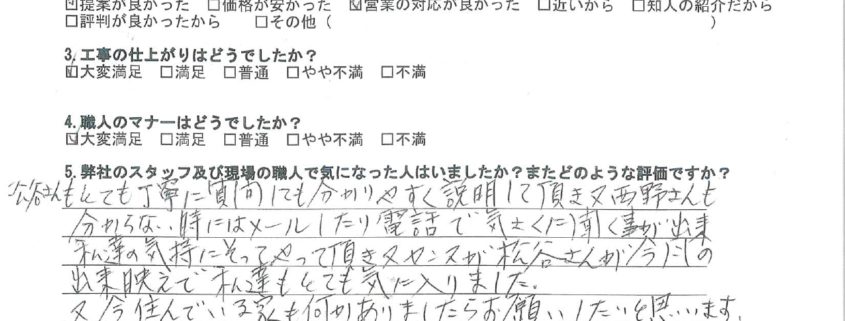 ☑提案が良かった □価格が安かった ☑営業の対応が良かった □近いから □知人の紹介だから
□評判が良かったから □その他（ ）
3. 工事の仕上がりはどうでしたか？
☑大変満足 □満足 □普通 □やや不満 □不満
4. 職人のマナーはどうでしたか？
☑大変満足 □満足 □普通 □やや不満 □不満
5. 弊社のスタッフ及び現場の職人で気になった人はいましたか？またどのような評価ですか？
松谷さんもとても丁寧に質問しても分かりやすく説明して頂き又西野さんも
分からない時にはメールしたり電話で気さくに聞く事が出来
私達の気持にそってやって頂き又 松谷さんが今回の
出来映えで私達もとても気に入りました.
又今住んでいる家も何かありましたらお願いしたいと思います.